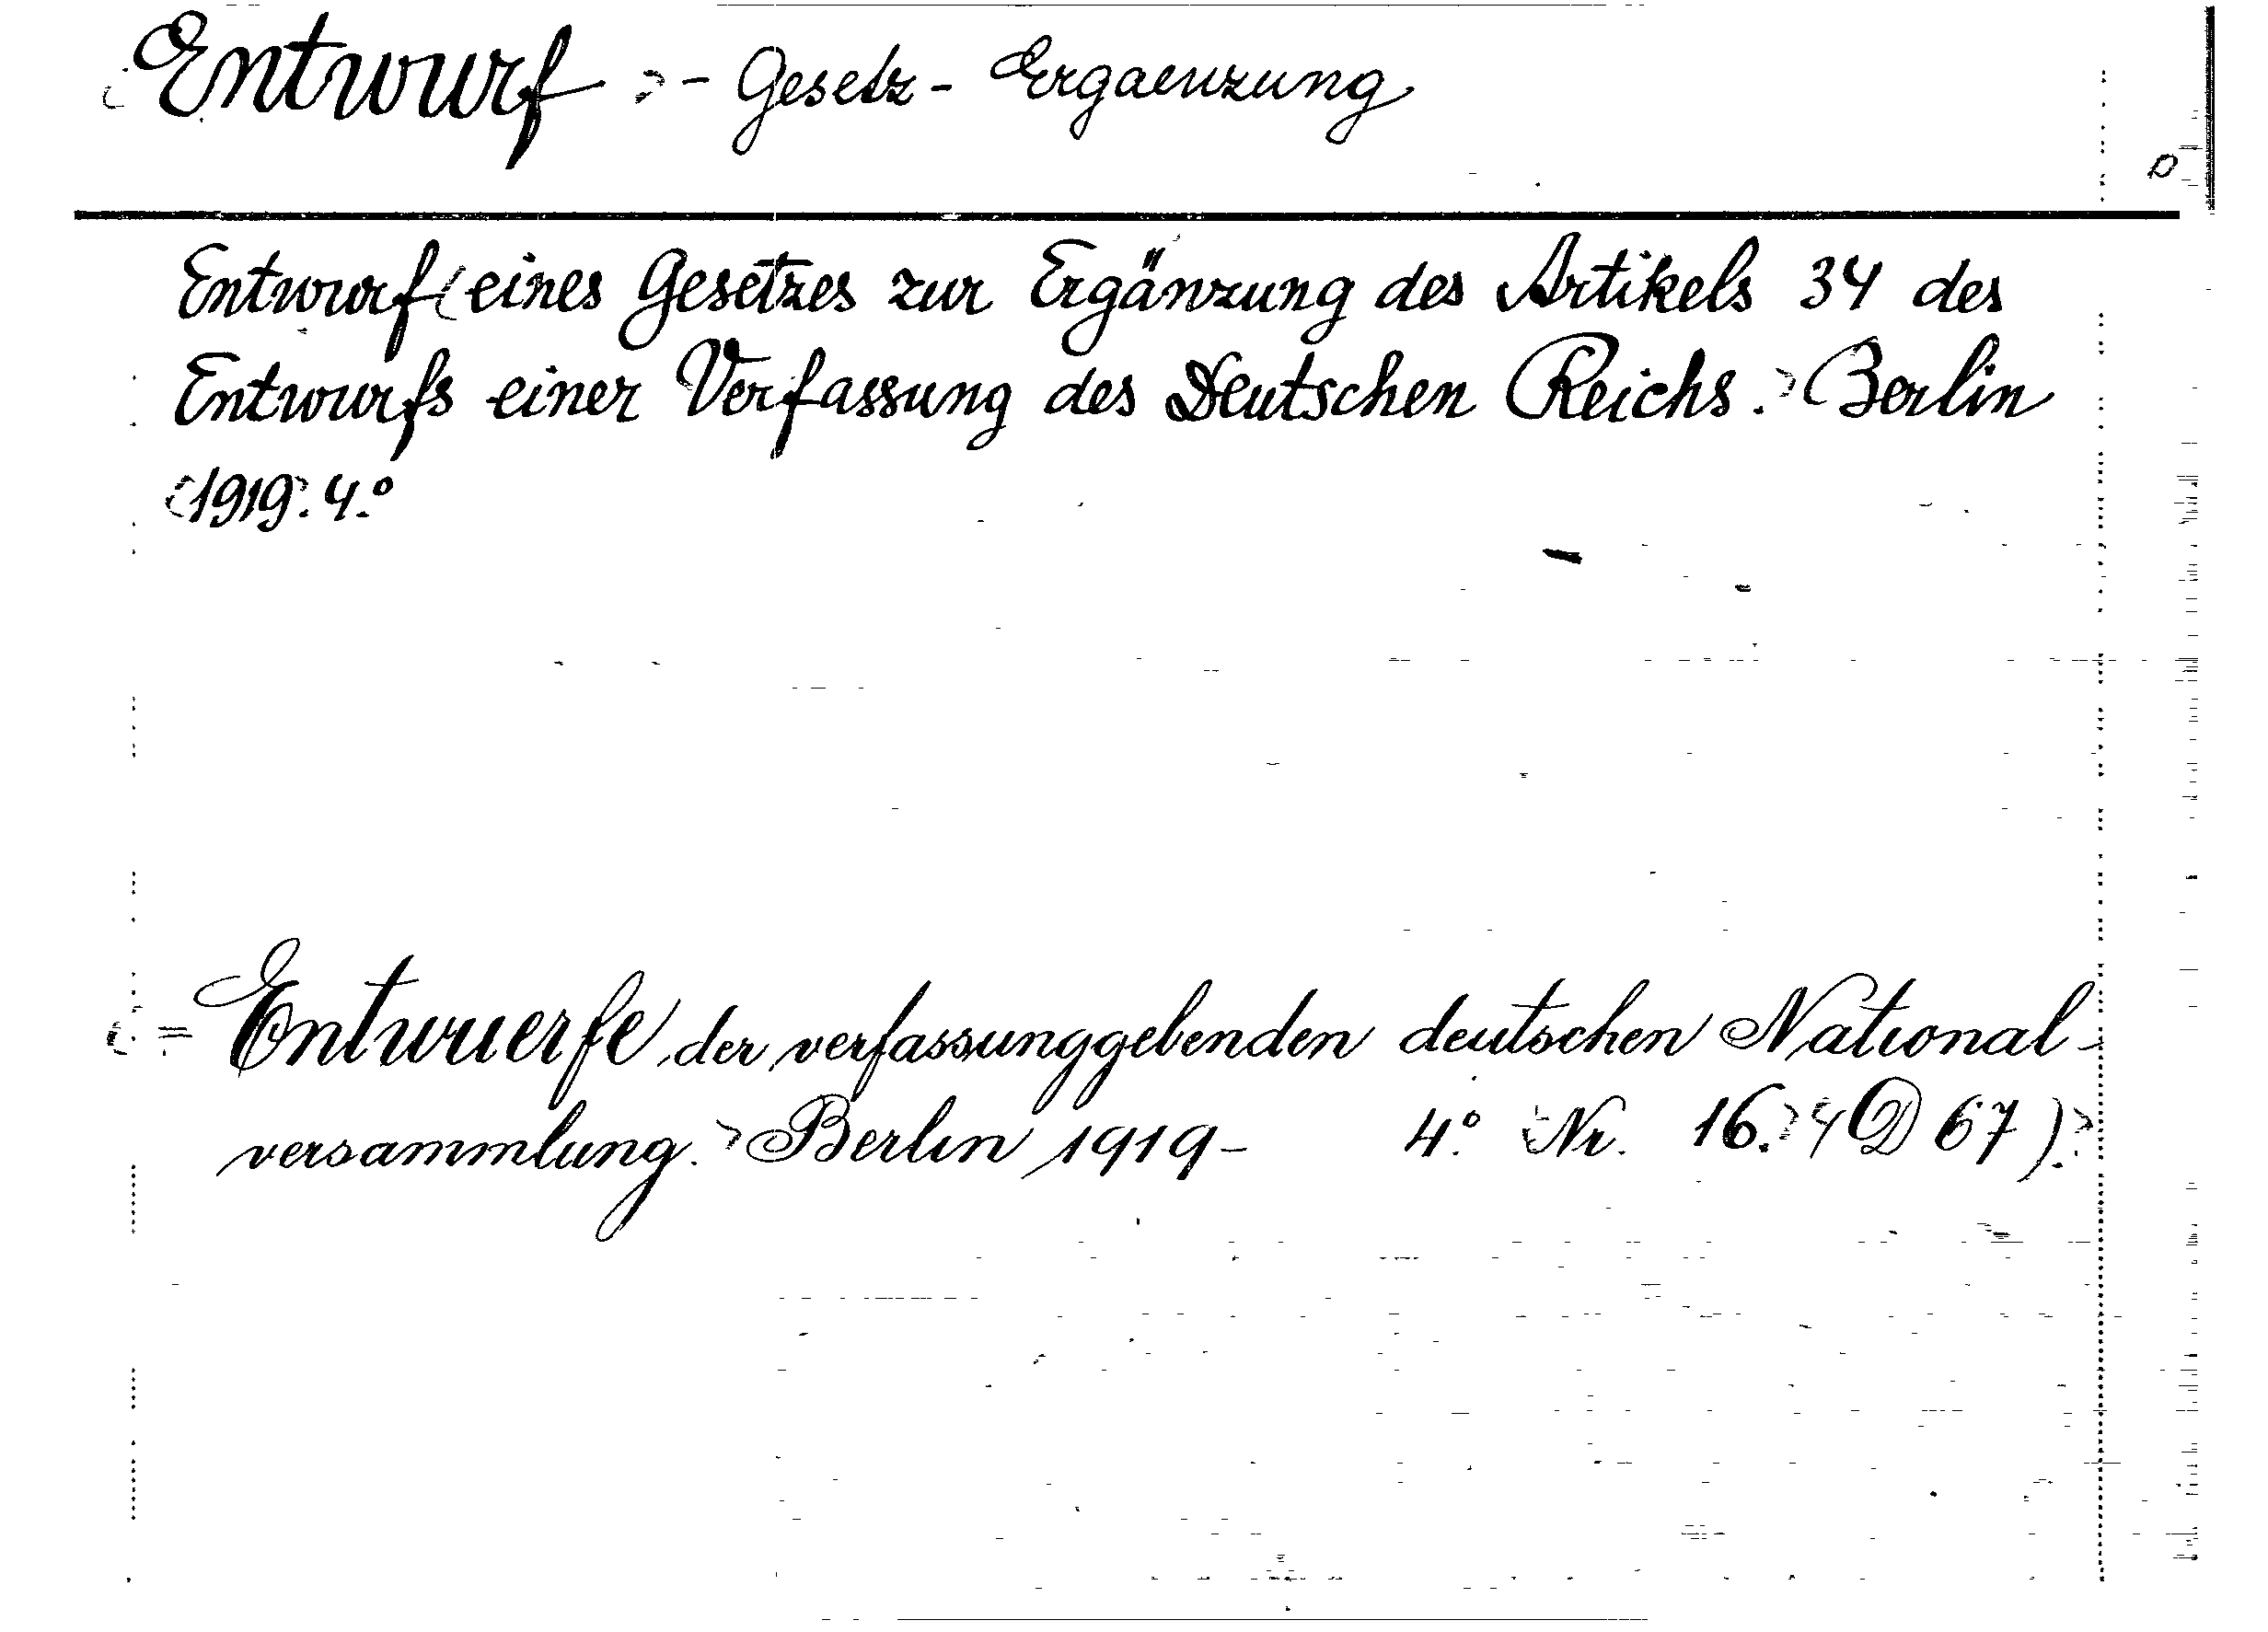 Entwurf - Gesetz - Ergaenzung
Entwurf eines Gesetzes zur Ergänzung des Artikels 34 des
Entwurfs einer Verfassung des Deutschen Reichs. Berlin
1919. 4.°
= Entwuerfe der verfassunggebenden deutschen National-
versammlung. Berlin 1919- 4.° Nr. 16. (D 67).